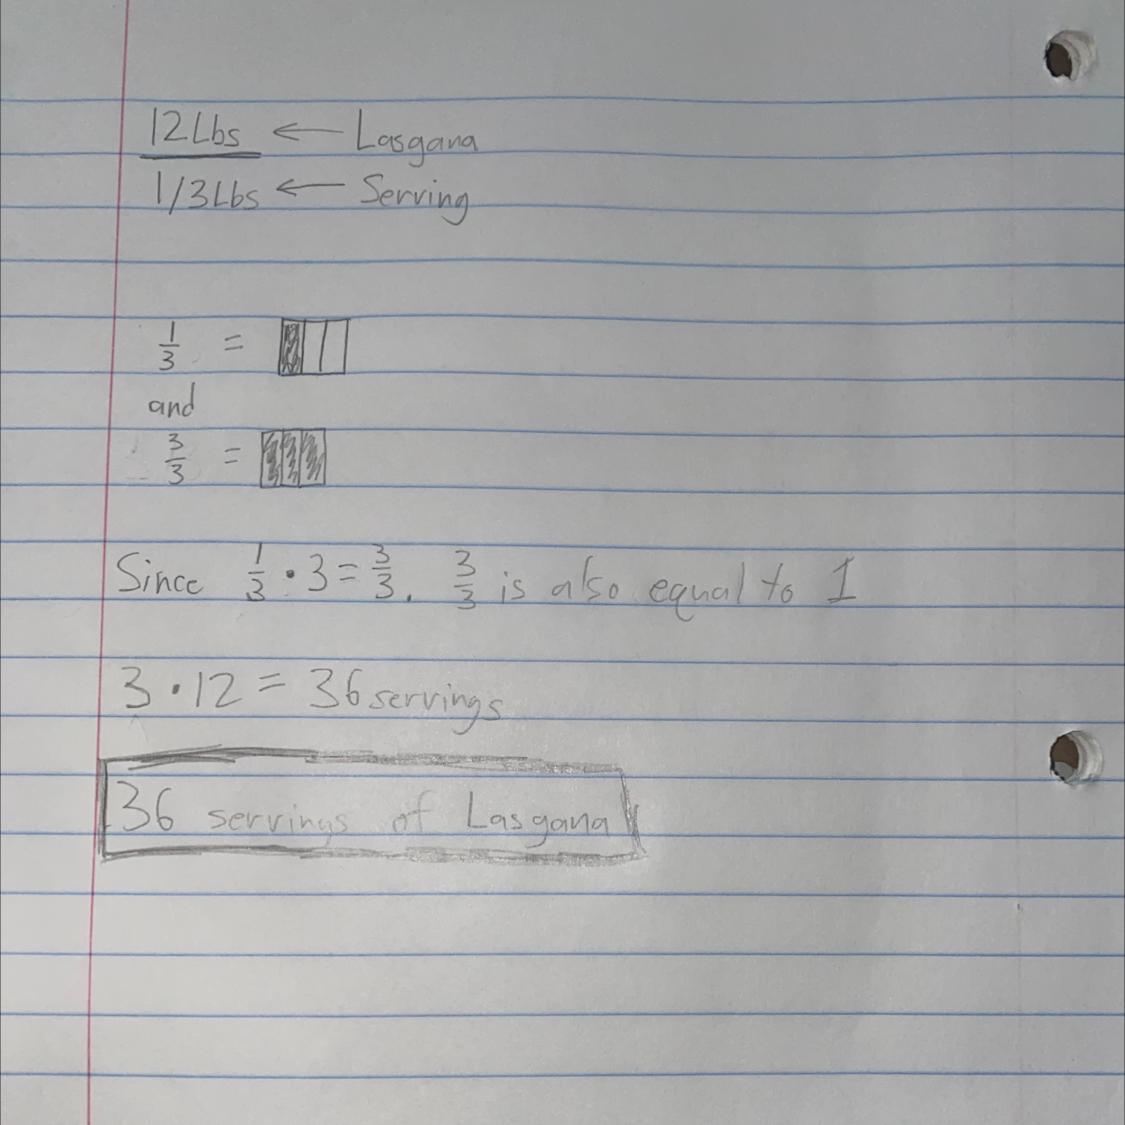 12Lbs ← Lasgana
1/3Lbs ← Serving
1/3 =
and
3/3 =
Since 1/3 · 3 = 3/3. 3/3 is also equal to 1
3 · 12 = 36 servings
36 servings of Lasgana